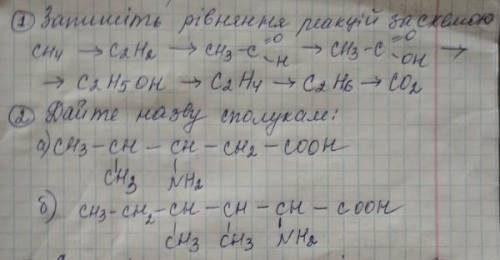 ① Запишіть рівняння реакцій за схемою
CH4 → C2H2 → CH3-C=O-H → CH3-C=O-OH →
→ C2H5OH → C2H4 → C2H6 → CO2
② Дайте назву сполукам:
а) CH3 - CH - CH - CH2 - COOH
CH3 NH2
б) CH3 - CH2 - CH - CH - CH - COOH
CH3 CH3 NH2